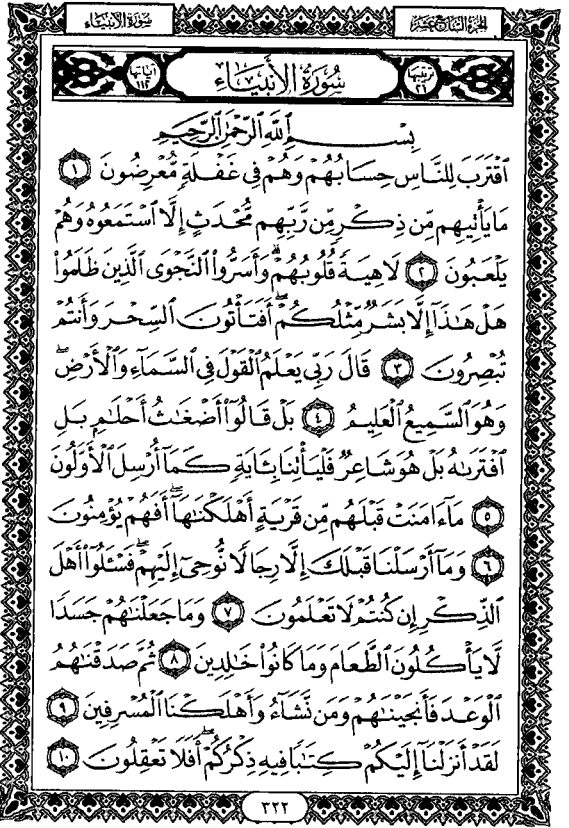 سورة الأنبياء
الجزء السابع عشر
ترتيبها ٢١
سُورَةُ الأَنبِيَاء
آياتها ١١٢
بِسْمِ ٱللَّهِ ٱلرَّحْمَٰنِ ٱلرَّحِيمِ
ٱقْتَرَبَ لِلنَّاسِ حِسَابُهُمْ وَهُمْ فِى غَفْلَةٍ مُّعْرِضُونَ ١
مَا يَأْتِيهِم مِّن ذِكْرٍ مِّن رَّبِّهِم مُّحْدَثٍ إِلَّا ٱسْتَمَعُوهُ وَهُمْ
يَلْعَبُونَ ٢ لَاهِيَةً قُلُوبُهُمْ ۗ وَأَسَرُّوا۟ ٱلنَّجْوَى ٱلَّذِينَ ظَلَمُوا۟
هَلْ هَٰذَآ إِلَّا بَشَرٌ مِّثْلُكُمْ ۖ أَفَتَأْتُونَ ٱلسِّحْرَ وَأَنتُمْ
تُبْصِرُونَ ٣ قَالَ رَبِّى يَعْلَمُ ٱلْقَوْلَ فِى ٱلسَّمَآءِ وَٱلْأَرْضِ ۖ
وَهُوَ ٱلسَّمِيعُ ٱلْعَلِيمُ ٤ بَلْ قَالُوٓا۟ أَضْغَٰثُ أَحْلَٰمٍۭ بَلِ
ٱفْتَرَىٰهُ بَلْ هُوَ شَاعِرٌ فَلْيَأْتِنَا بِـَٔايَةٍ كَمَآ أُرْسِلَ ٱلْأَوَّلُونَ
٥ مَآ ءَامَنَتْ قَبْلَهُم مِّن قَرْيَةٍ أَهْلَكْنَٰهَآ ۖ أَفَهُمْ يُؤْمِنُونَ
٦ وَمَآ أَرْسَلْنَا قَبْلَكَ إِلَّا رِجَالًا نُّوحِىٓ إِلَيْهِمْ ۖ فَسْـَٔلُوٓا۟ أَهْلَ
ٱلذِّكْرِ إِن كُنتُمْ لَا تَعْلَمُونَ ٧ وَمَا جَعَلْنَٰهُمْ جَسَدًا
لَّا يَأْكُلُونَ ٱلطَّعَامَ وَمَا كَانُوا۟ خَٰلِدِينَ ٨ ثُمَّ صَدَقْنَٰهُمُ
ٱلْوَعْدَ فَأَنجَيْنَٰهُمْ وَمَن نَّشَآءُ وَأَهْلَكْنَا ٱلْمُسْرِفِينَ ٩
لَقَدْ أَنزَلْنَآ إِلَيْكُمْ كِتَٰبًا فِيهِ ذِكْرُكُمْ ۖ أَفَلَا تَعْقِلُونَ ١٠
٣٢٢